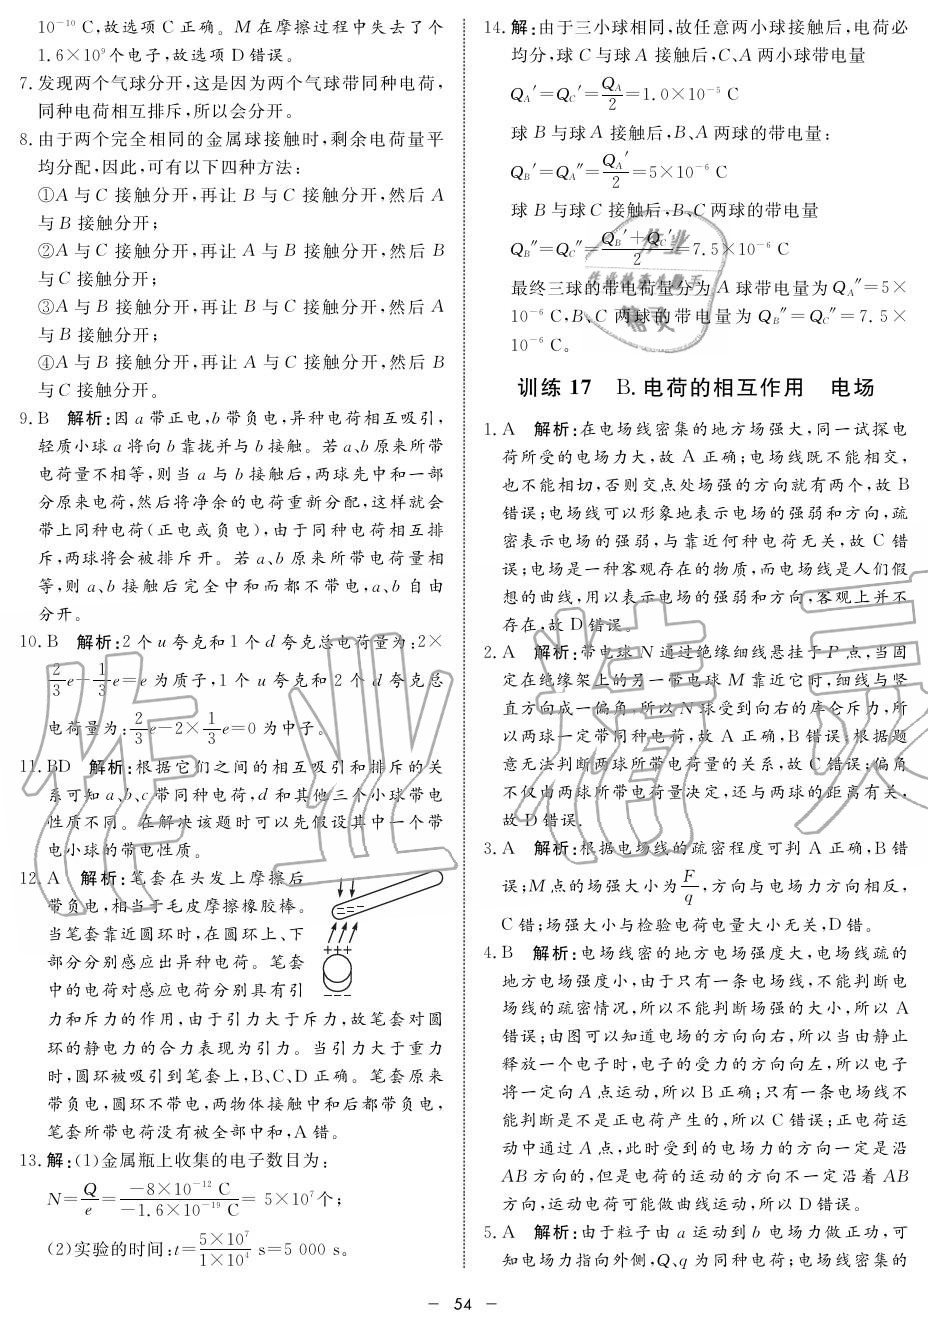 10⁻¹⁰ C,故选项 C 正确。M 在摩擦过程中失去了个
1.6×10⁹个电子,故选项 D 错误。
7. 发现两个气球分开,这是因为两个气球带同种电荷,
同种电荷相互排斥,所以会分开。
8. 由于两个完全相同的金属球接触时,剩余电荷量平
均分配,因此,可有以下四种方法:
①A 与 C 接触分开,再让 B 与 C 接触分开,然后 A
与 B 接触分开;
②A 与 C 接触分开,再让 A 与 B 接触分开,然后 B
与 C 接触分开;
③A 与 B 接触分开,再让 B 与 C 接触分开,然后 A
与 B 接触分开;
④A 与 B 接触分开,再让 A 与 C 接触分开,然后 B
与 C 接触分开。
9. B 解析:因 a 带正电,b 带负电,异种电荷相互吸引,
轻质小球 a 将向 b 靠拢并与 b 接触。若 a、b 原来所带
电荷量不相等,则当 a 与 b 接触后,两球先中和一部
分原来电荷,然后将净余的电荷重新分配,这样就会
带上同种电荷(正电或负电),由于同种电荷相互排
斥,两球将会被排斥开。若 a、b 原来所带电荷量相
等,则 a、b 接触后完全中和而都不带电,a、b 自由
分开。
10. B 解析:2 个 u 夸克和 1 个 d 夸克总电荷量为:2×
2/3e−1/3e=e 为质子,1 个 u 夸克和 2 个 d 夸克总
电荷量为:2/3e−2×1/3e=0 为中子。
11. BD 解析:根据它们之间的相互吸引和排斥的关
系可知 a、b、c 带同种电荷,d 和其他三个小球带电
性质不同。在解决该题时可以先假设其中一个带
电小球的带电性质。
12. A 解析:笔套在头发上摩擦后
带负电,相当于毛皮摩擦橡胶棒。
当笔套靠近圆环时,在圆环上、下
部分分别感应出异种电荷。笔套
中的电荷对感应电荷分别具有引
力和斥力的作用,由于引力大于斥力,故笔套对圆
环的静电力的合力表现为引力。当引力大于重力
时,圆环被吸引到笔套上,B、C、D 正确。笔套原来
带负电,圆环不带电,两物体接触中和后都带负电,
笔套所带电荷没有被全部中和,A 错。
13. 解:(1)金属瓶上收集的电子数目为:
N=Q/e=−8×10⁻¹² C/−1.6×10⁻¹⁹ C= 5×10⁷个;
(2)实验的时间:t=5×10⁷/1×10⁴ s=5 000 s。
14. 解:由于三小球相同,故任意两小球接触后,电荷必
均分,球 C 与球 A 接触后,C、A 两小球带电量
Q_A′=Q_C′=Q_A/2=1.0×10⁻⁵ C
球 B 与球 A 接触后,B、A 两球的带电量:
Q_B′=Q_A″=Q_A′/2=5×10⁻⁶ C
球 B 与球 C 接触后,B、C 两球的带电量
Q_B″=Q_C″=Q_B′+Q_C′/2=7.5×10⁻⁶ C
最终三球的带电荷量分为 A 球带电量为 Q_A″=5×
10⁻⁶ C,B、C 两球的带电量为 Q_B″=Q_C″=7.5×
10⁻⁶ C。
训练 17 B. 电荷的相互作用 电场
1. A 解析:在电场线密集的地方场强大,同一试探电
荷所受的电场力大,故 A 正确;电场线既不能相交,
也不能相切,否则交点处场强的方向就有两个,故 B
错误;电场线可以形象地表示电场的强弱和方向,疏
密表示电场的强弱,与靠近何种电荷无关,故 C 错
误;电场是一种客观存在的物质,而电场线是人们假
想的曲线,用以表示电场的强弱和方向,客观上并不
存在,故 D 错误。
2. A 解析:带电球 N 通过绝缘细线悬挂于 P 点,当固
定在绝缘架上的另一带电球 M 靠近它时,细线与竖
直方向成一偏角,所以 N 球受到向右的库仑斥力,所
以两球一定带同种电荷,故 A 正确,B 错误;根据题
意无法判断两球所带电荷量的关系,故 C 错误;偏角
不仅由两球所带电荷量决定,还与两球的距离有关,
故 D 错误.
3. A 解析:根据电场线的疏密程度可判 A 正确,B 错
误;M 点的场强大小为F/q,方向与电场力方向相反,
C 错;场强大小与检验电荷电量大小无关,D 错。
4. B 解析:电场线密的地方电场强度大,电场线疏的
地方电场强度小,由于只有一条电场线,不能判断电
场线的疏密情况,所以不能判断场强的大小,所以 A
错误;由图可以知道电场的方向向右,所以当由静止
释放一个电子时,电子的受力的方向向左,所以电子
将一定向 A 点运动,所以 B 正确;只有一条电场线不
能判断是不是正电荷产生的,所以 C 错误;正电荷运
动中通过 A 点,此时受到的电场力的方向一定是沿
AB 方向的,但是电荷的运动的方向不一定沿着 AB
方向,运动电荷可能做曲线运动,所以 D 错误。
5. A 解析:由于粒子由 a 运动到 b 电场力做正功,可
知电场力指向外侧,Q、q 为同种电荷;电场线密集的
— 54 —